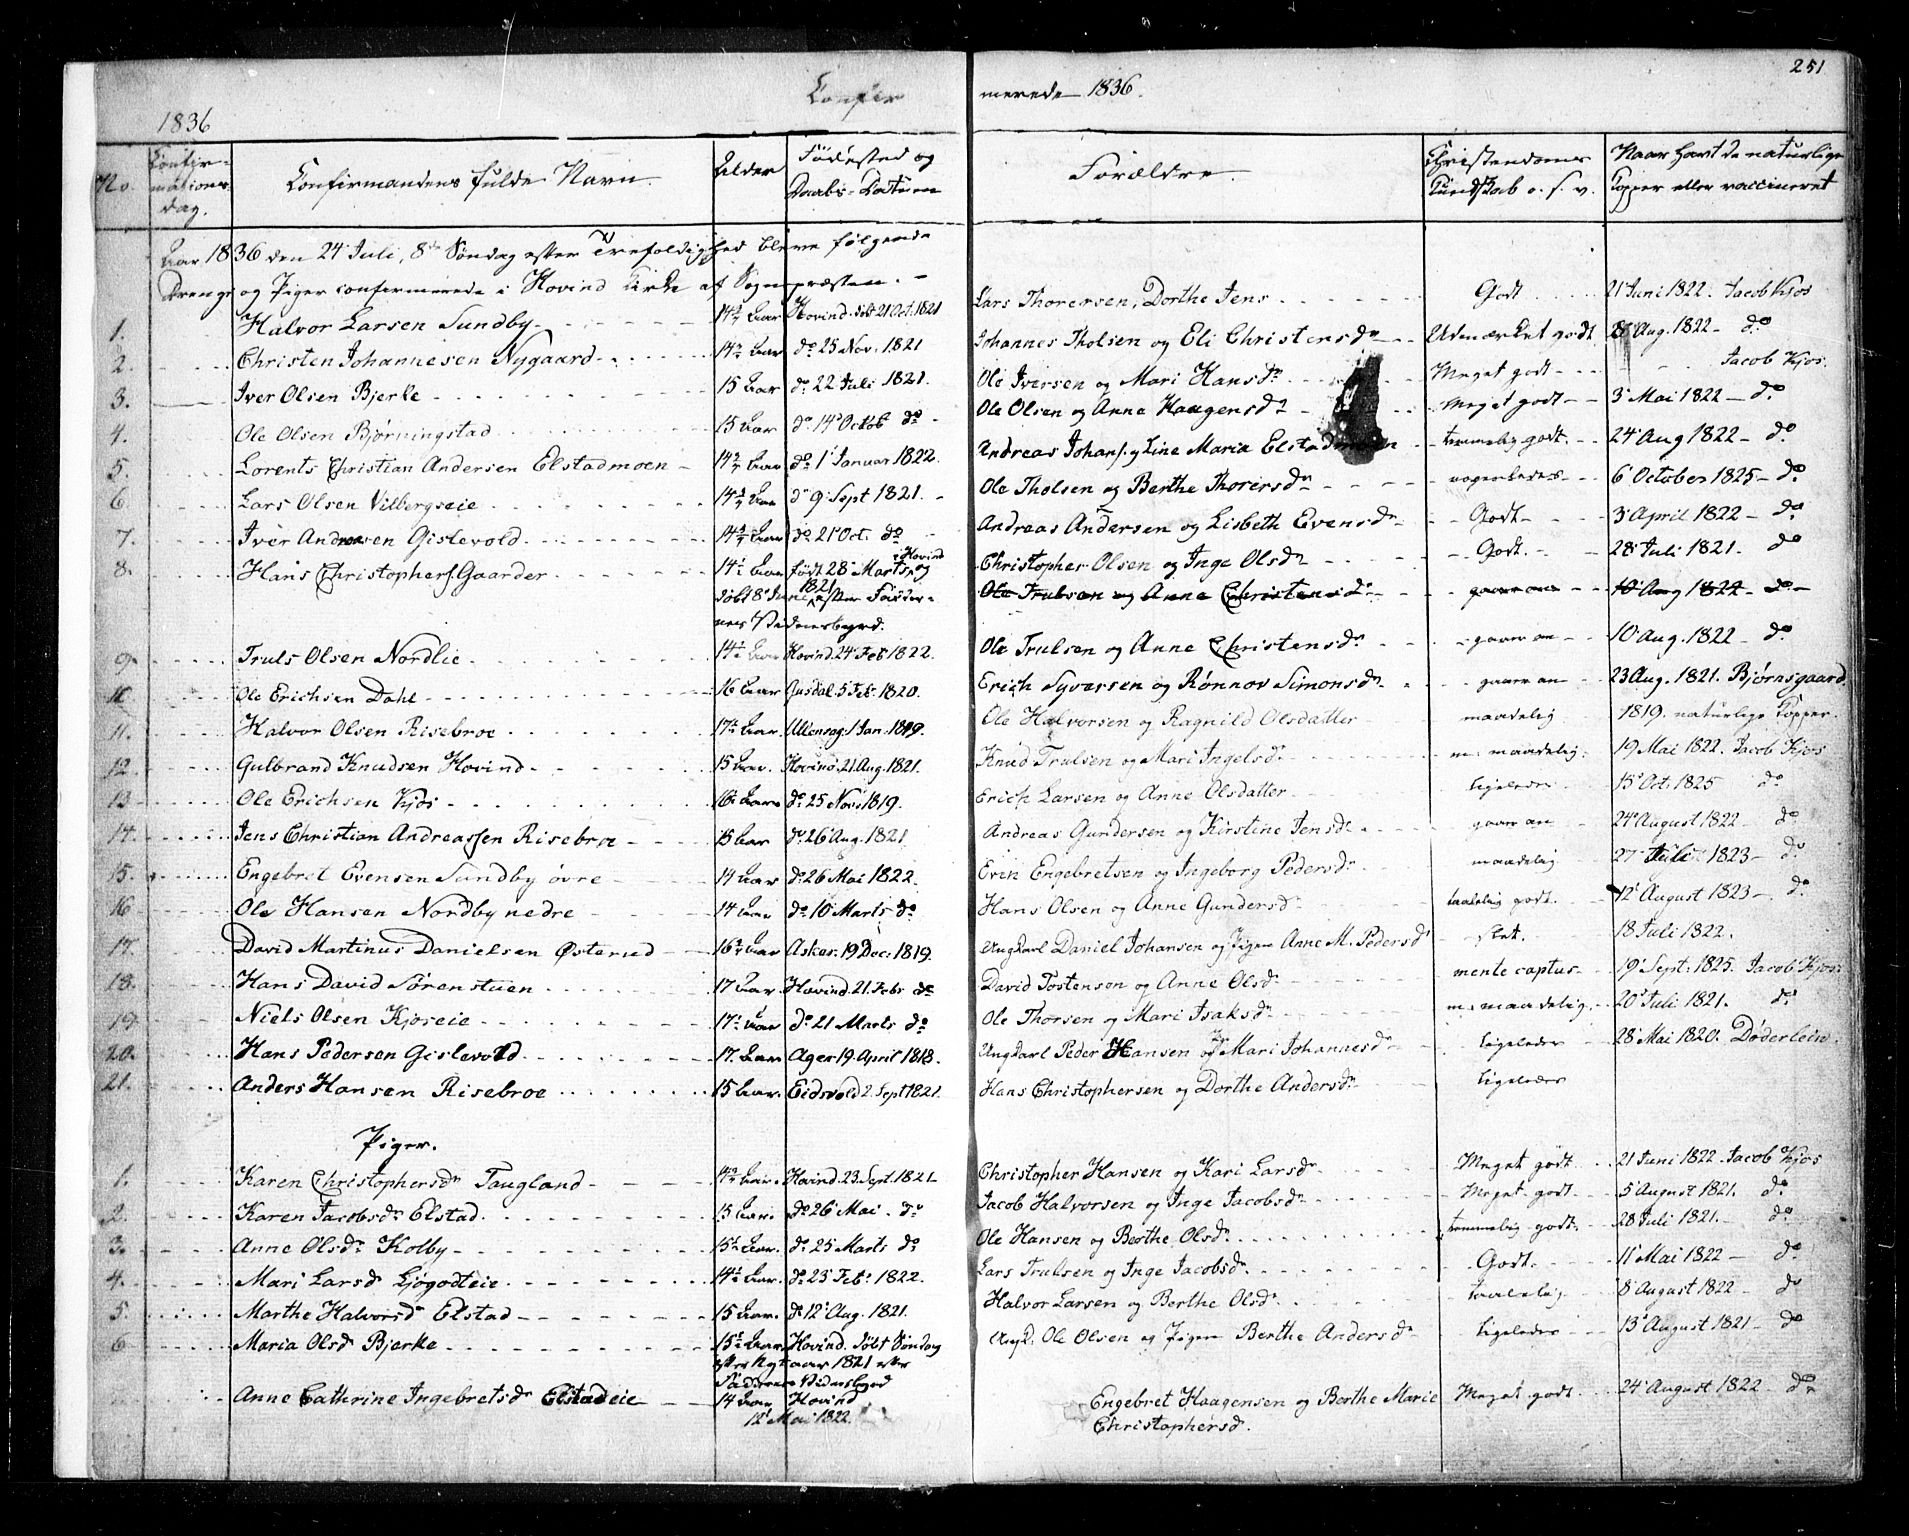 251
Confir merede 1836.
1836
No. Confirmations dag. Confirmandens fulde Navn. Alder Fødested og Daabs-Datum Forældre. Christendoms Kundskab o. s. v. Naar havt de naturlige Kopper eller vaccineret
Aar 1836 den 24 Juli, 8de Søndag efter Trefoldighed bleve følgende
Drenge og Piger confirmerede i Hovind Kirke af Sognepræsten. -
1. Halvor Larsen Sundby 14 3/4 Aar Hovind. født 21 Oct. 1821 Lars Thorersen, Dorthe Jens Godt 21 Juni 1822. Jacob Kjos
2. Christen Johannesen Nygaard 14 3/4 Aar do 25 Nov. 1821 Johannes Tholsen og Eli Christensdr Udmærket godt Aug. 1822 - do
3. Iver Olsen Bjerke 15 Aar do 22 Juli 1821. Ole Iversen og Mari Hansdr Meget godt Jacob Kjos.
4. Ole Olsen Bjørningstad 15 Aar do 14 Octob do Ole Olsen og Anne Haagensdr Meget godt 3 Mai 1822 - do
5. Lorents Christian Andersen Elstadmoen 14 Aar do 1 Januar 1822. Andreas Johans. og Line Maria Elstadmoen temmelig godt. 24 Aug 1822 - do
6. Lars Olsen Vilbergseie 14 3/4 Aar do 9 Sept 1821. Ole Tholsen og Berthe Thorersdr 6 October 1825 - do
7. Iver Andresen Gislevold 14 3/4 Aar do 21 Oct. do Andreas Andersen og Lisbeth Evensdr Godt 3 April 1822 - do
8. Hans Christophers. Gaarder 14 Aar født 28 Marts i Hovind og Christopher Olsen og Inge Olsdr Godt. 28 Juli 1821. do
døbt 8 Juni 1821 efter Fade- Ole Trulsen og Anne Christensdr gaar an 10 Aug 1822 - do
rens Vidnesbyrd.
9. Truls Olsen Nordlie 14 Aar Hovind. 24 Feb 1822. Ole Trulsen og Anne Christensdr gaar an 10 Aug. 1822 - do
10. Ole Erichsen Dahl 16 Aar 5 Feb. 1820. Erich Syversen og Rønnov Simonsdr gaar an 23 Aug. 1821. Bjørnsgaard.
11. Halvor Olsen Risebroe 17 Aar. Ullensag. 1 Jan. 1819. Ole Halvorsen og Ragnild Olsdatter maadelig 1819. naturlige Kopper.
12. Gulbrand Knudsen Hovind 15 Aar. Hovind. 21 Aug. 1821. Knud Trulsen og Mari Ingelsdr m. maadelig. 19 Mai 1822. Jacob Kjos
13. Ole Erichsen Kjos 16 Aar. do 25 Nov. 1819. Erich Larsen og Anne Olsdatter ligeledes 15 Oct. 1825 do
14. Jens Christian Andreassen Risebroe 15 Aar do 26 Aug. 1821 Andreas Gundersen og Kirstine Jensdr gaar an 24 August 1822 do
15. Engebret Evensen Sundby øvre 14 Aar do 26 Mai 1822. Even Engebretsen og Ingeborg Pedersdr maadelig 27 Juli 1823 - do
16 Ole Hansen Nordby nedre 14 Aar do 10 Marts do Hans Olsen og Anne Gundersdr taalelig godt. 12 August 1823 - do
17. David Martinus Danielsen Østerud 16 Aar Asker. 19 Dec. 1819. Ungkarl Daniel Johansen og Pigen Anne M. Pedersdr slet. 18 Juli 1822.
18. Hans David Sørenstuen 17 Aar Hovind. 21 Febr do David Tostensen og Anne Olsdr mente captus 19 Sept. 1825. Jacob Kjos
19 Niels Olsen Kjoseie 17 Aar do 21 Marts do Ole Thorsen og Mari Isaksdr m. maadelig. 20 Juli 1821. do
20. Hans Pedersen Gislevold 17 Aar Ager 19 April 1818. Ungkarl Peder Hansen og Mari Johannesdr ligeledes 28 Mai 1820. Døderlein.
21. Anders Hansen Risebroe 15 Aar. Eidsvold 2 Sept 1821. Hans Christophersen og Dorthe Andersdr ligeledes
Piger.
1. Karen Christophersdr Taugland 14 3/4 Aar. Hovind. 23. Sept. 1821 Christopher Hansen og Kari Larsdr Meget godt 21 Juni 1822. Jacob Kjos
2. Karen Jacobsdr Elstad 15 Aar. do 26 Mai. do Jacob Halvorsen og Inge Jacobsdr Meget godt. 5 August 1821. do
3. Anne Olsdr Kolby 15 Aar. do 25 Marts do Ole Hansen og Berthe Olsdr temmelig godt. 28 Juli 1821. do
4. Mari Larsdr Ljøgodteie 14 Aar. do 23 Feb. 1822. Lars Trulsen og Inge Jacobsdr Godt. 11 Mai 1822 - do
5. Marthe Halvorsdr Elstad 15 Aar. do 12 Aug. 1821. Halvor Larsen og Berthe Olsdr taalelig 8 August 1822 - do
6 Maria Olsdr Bjerke 15 Aar Hovind. døbt Søndag Ungk. Ole Olsen og Pigen Berthe Andersdr ligeledes 13 August 1821 - do
efter Nytaar 1821 efter
Faderens Vidnesbyrd
Anne Cathrine Ingebretsdr Elstadeie 14 Aar Hovind Engebret Haagensen og Berthe Marie Meget godt 24 August 1822 do
12 Mai 1822. Christophersdr.